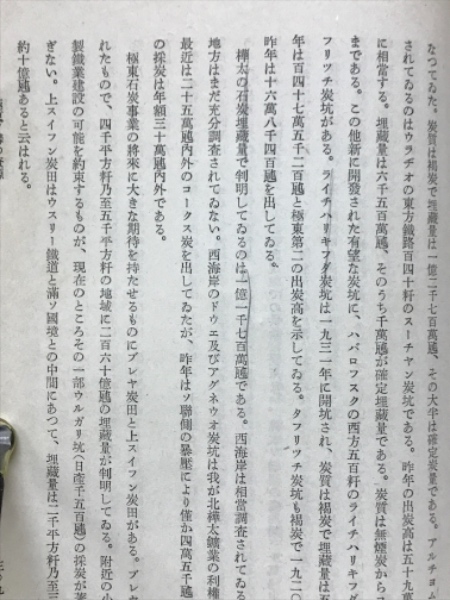 なつてゐた。炭質は褐炭で埋蔵量は一億二千七百萬瓲、その大半は確定炭量である。アルチヨム
されてゐるのはウラヂオの東方鐵路百四十粁のスーチヤン炭坑である。昨年の出炭高は五十九萬
に相當する。埋蔵量は六千五百萬瓲、そのうち千萬瓲が確定埋蔵量である。炭質は無煙炭からコ
まである。この他新に開發された有望な炭坑に、ハバロフスクの西方五百粁のライチハリキフダ
フリツチ炭坑がある。ライチハリキフダ炭坑は一九三一年に開坑され、炭質は褐炭で埋蔵量は五
年は百四十七萬五千二百瓲と極東第二の出炭高を示してゐる。タフリツチ炭坑も褐炭で一九二〇
昨年は十六萬八千四百瓲を出してゐる。
樺太の石炭埋蔵量で判明してゐるのは一億一千七百萬瓲である。西海岸は相當調査されてゐる
地方はまだ充分調査されてゐない。西海岸のドウエ及びアグネウオ炭坑は我が北樺太鑛業の利權
最近は二十五萬瓲內外のコークス炭を出してゐたが、昨年はソ聯側の暴壓により僅か四萬五千瓲
の採炭は年額三十萬瓲內外である。
極東石炭事業の將來に大きな期待を持たせるものにブレヤ炭田と上スイフン炭田がある。ブレヤ
れたもので、四千平方粁乃至五千平方粁の地域に二百六十億瓲の埋蔵量が判明してゐる。附近の小
製鐵業建設の可能を約束するものが、現在のところその一部ウルガリ坑（日産千五百瓲）の採炭が著
ぎない。上スイフン炭田はウスリー鐵道と滿ソ國境との中間にあつて、埋蔵量は二千平方粁乃至三
約十億瓲あると云はれる。